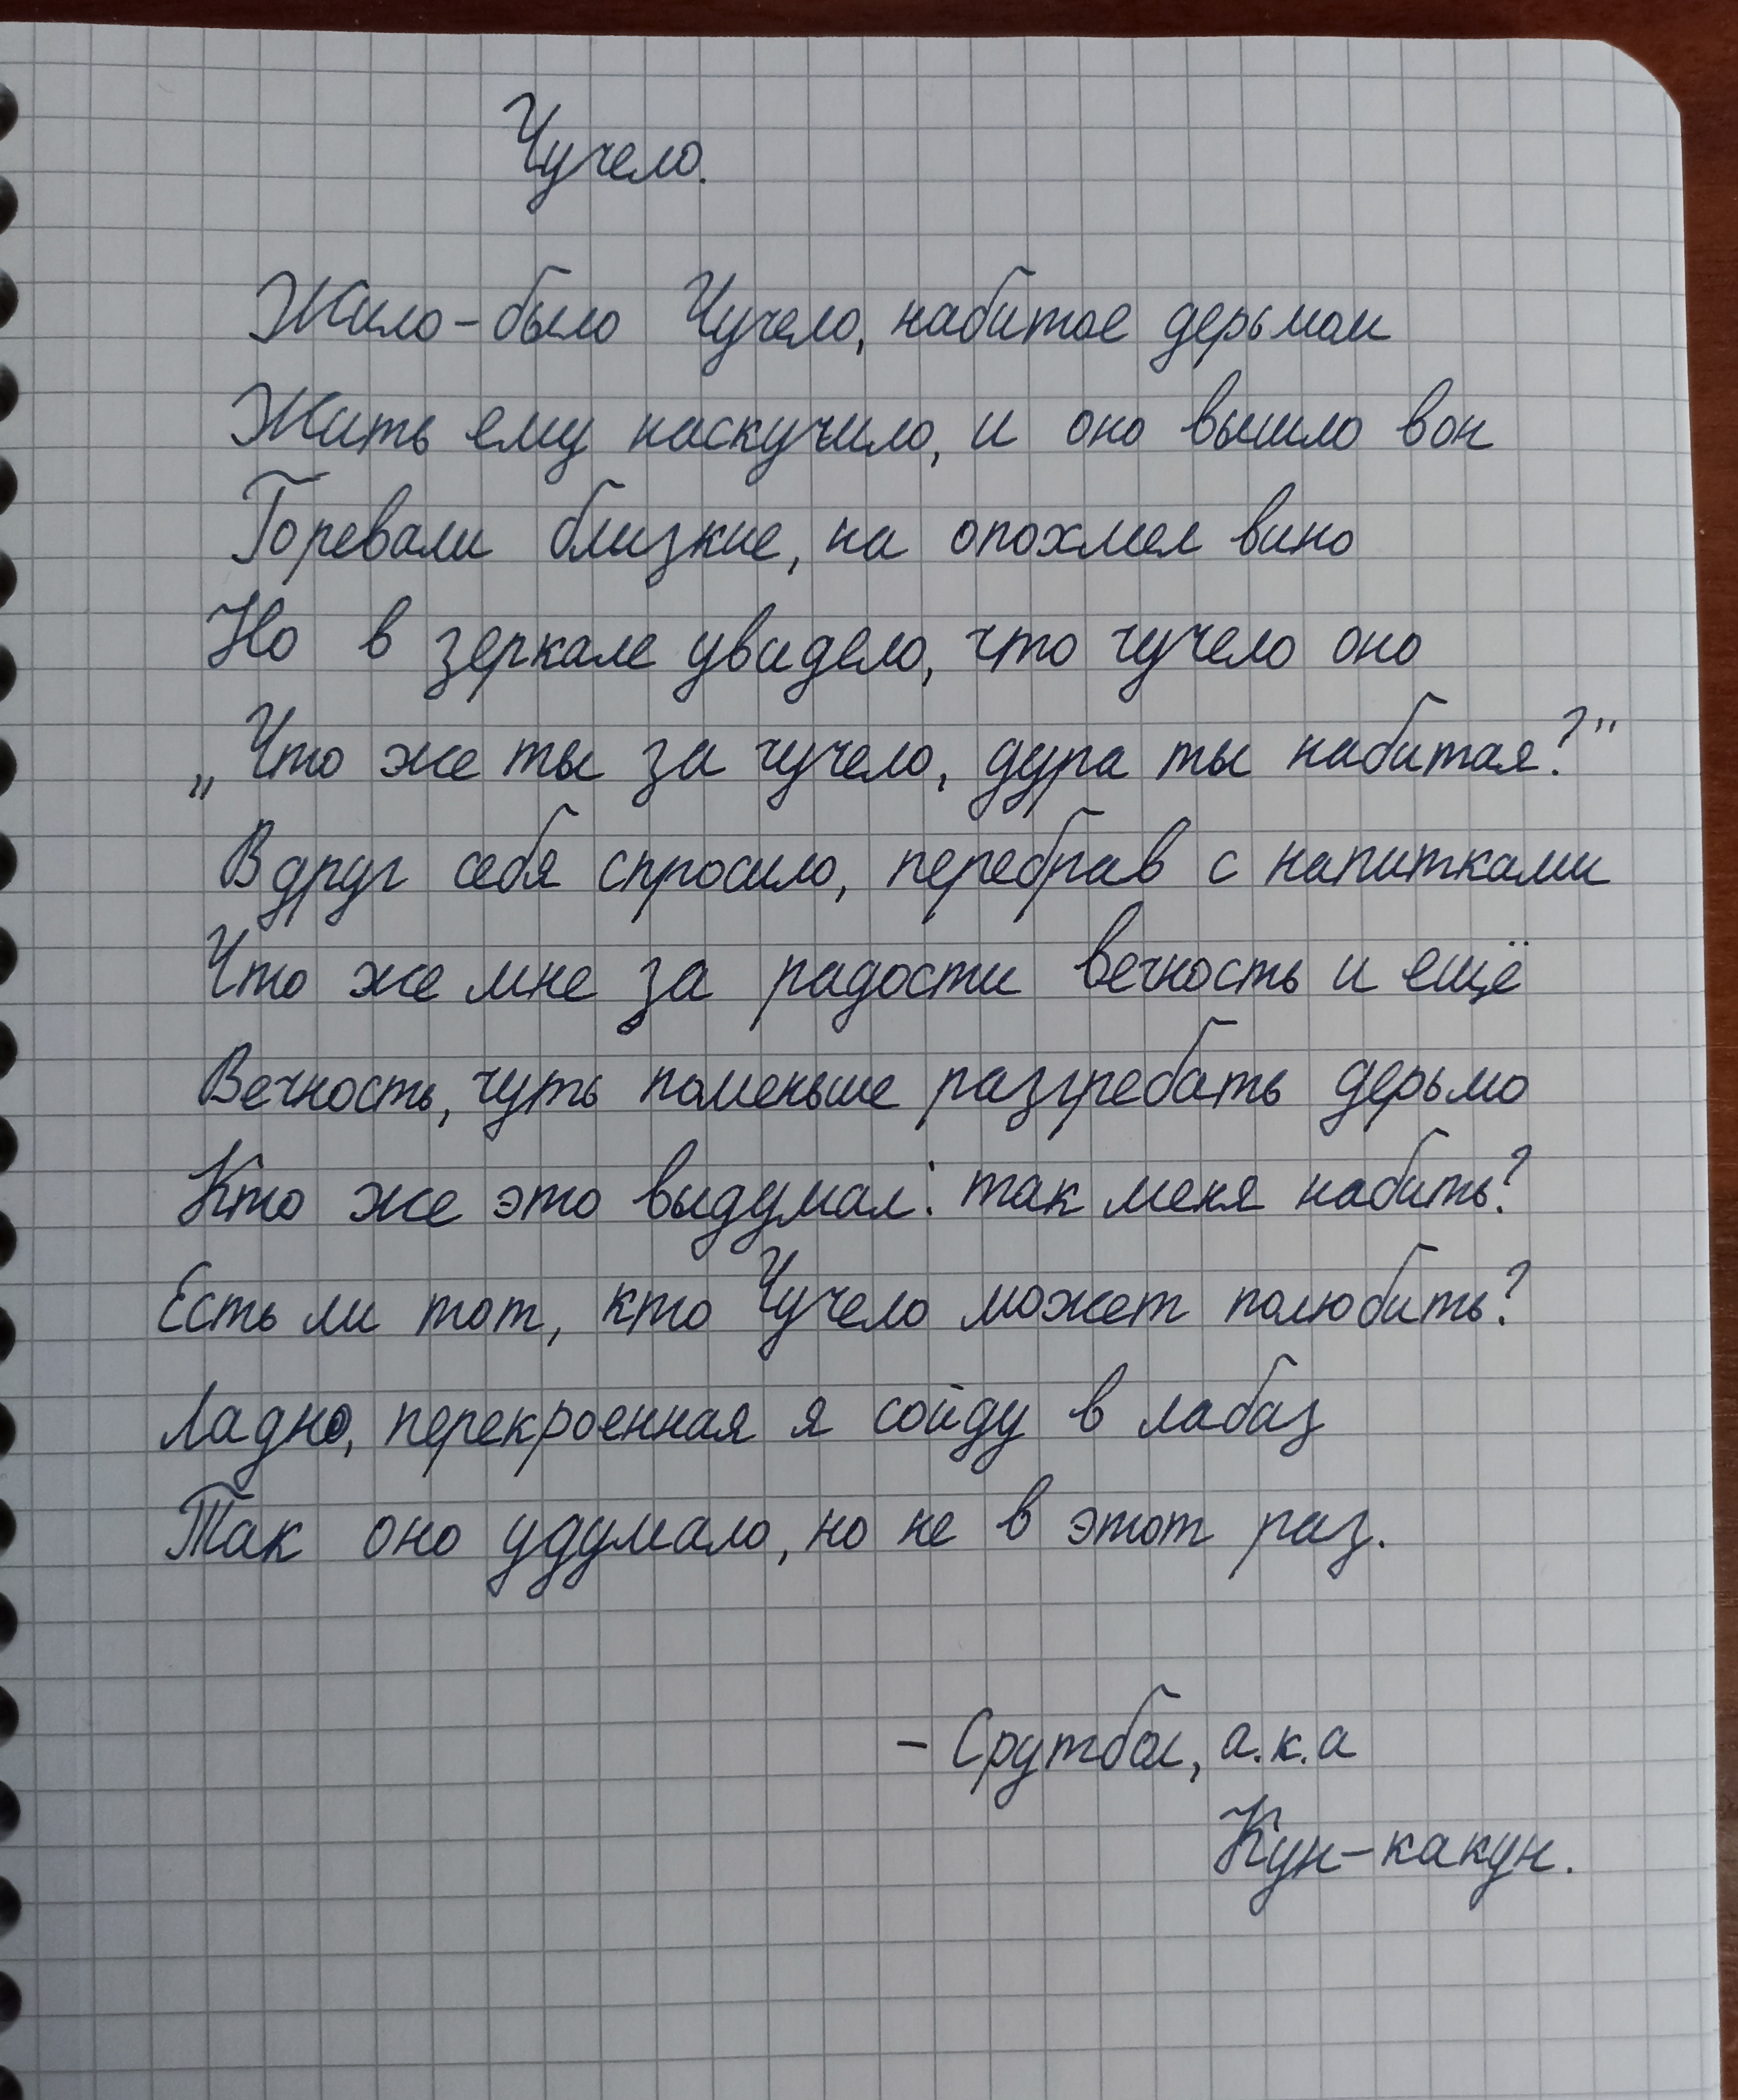 Чучело.
Жило-было Чучело, набитое дерьмом
Жить ему наскучило, и оно вышло вон
Горевали близкие, на опохмел вино
Но в зеркале увидело, что чучело оно
„Что же ты за чучело, дура ты набитая?"
Вдруг себя спросило, перебрав с напитками
Что же мне за радости вечность и ещё
Вечность, чуть поменьше разгребать дерьмо
Кто же это выдумал: так меня набить?
Есть ли тот, кто Чучело может полюбить?
Ладно, перекроенная я сойду в лабаз
Так оно удумало, но не в этот раз.
– а.к.а
Кун-какун.